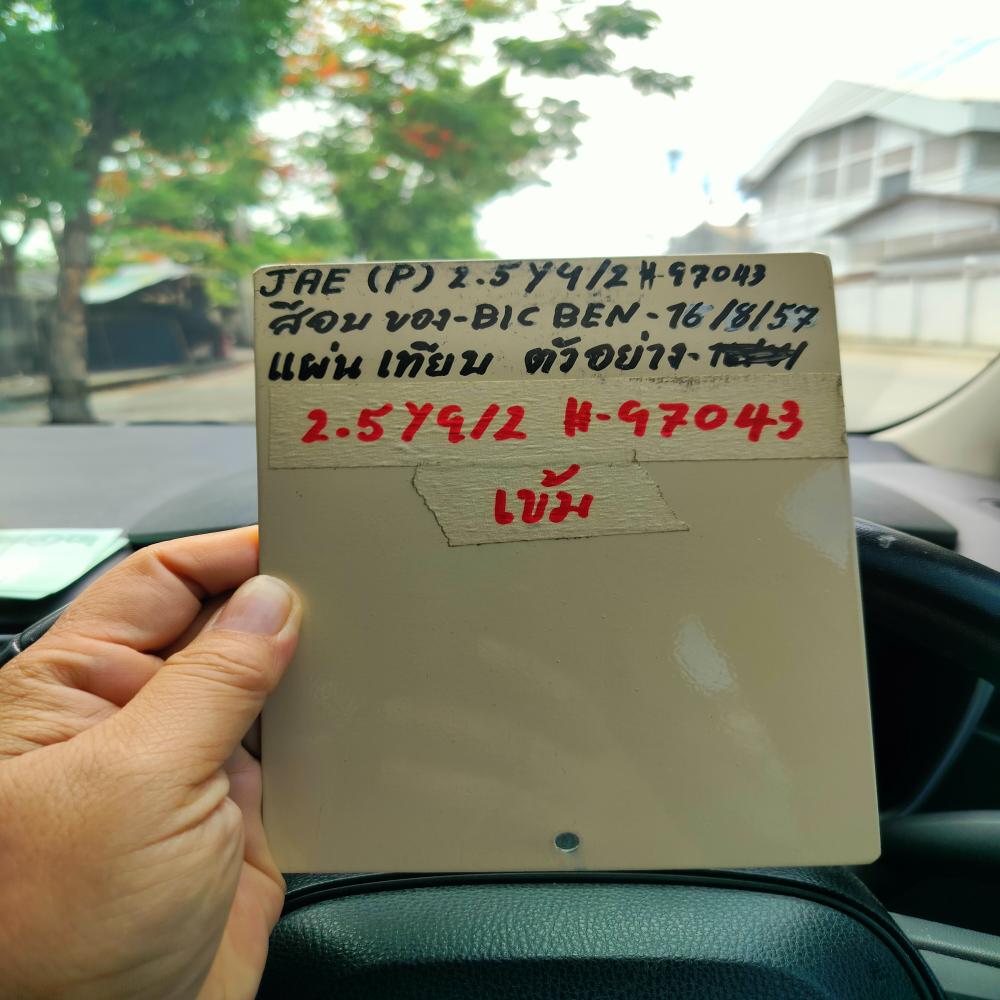 JAE (P) 2.5Y9/2 H-97043
สีอบ ของ-BIC BEN-16/8/57
แผ่น เทียบ ตัวอย่าง-
2.5Y9/2 H-97043
เข้ม